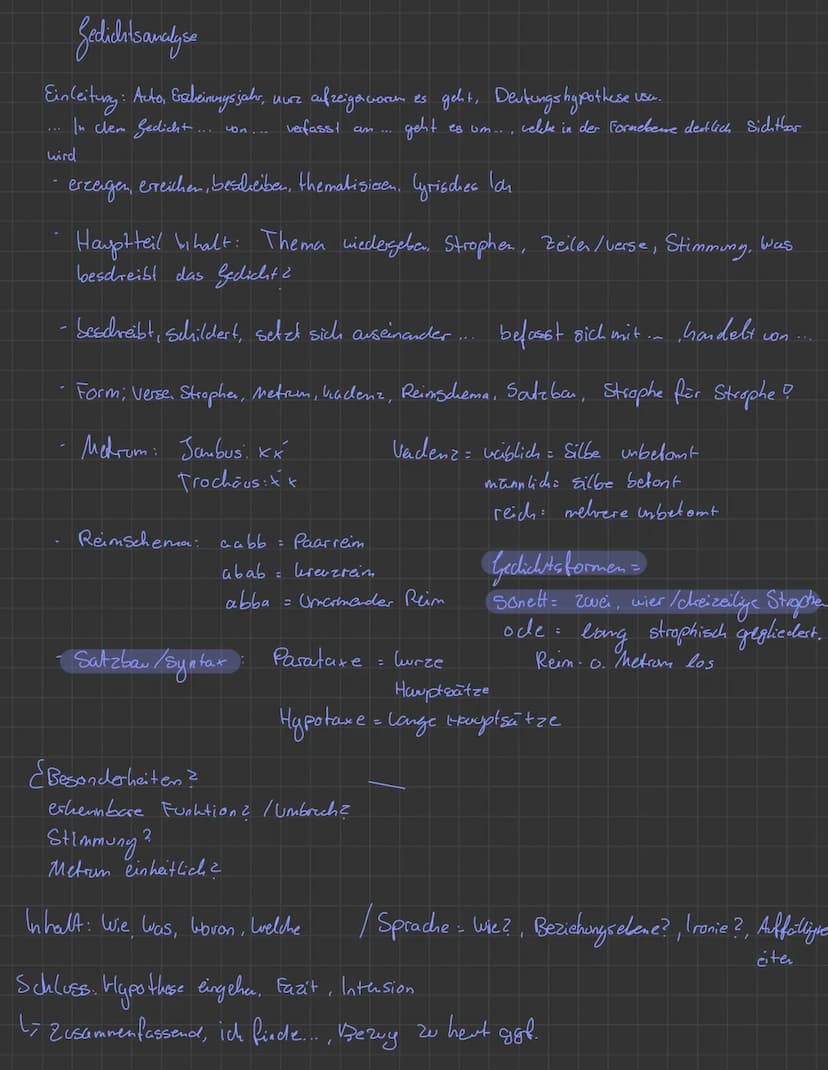 Gedichtsanalyse
Einleitung: Auto, Erscheinungsjahr, kurz aufzeigen worum es geht, Deutungshypothese usw.
... In dem Gedicht ... von ... verfasst am ... geht es um ..., welche in der Formebene deutlich Sichtbar
wird
- erzeugen, erreichen, beschreiben, thematisieren, lyrisches Ich
- Hauptteil Inhalt: Thema wiedergeben, Strophen, Zeilen/verse, Stimmung, Was
beschreibt das Gedicht?
- beschreibt, schildert, setzt sich auseinander ... befasst sich mit ..., handelt von ...
- Form; Verse, Strophen, Metrum, Kadenz, Reimschema, Satzbau, Strophe für Strophe?
- Metrum: Jambus: xx́ Kadenz = weiblich = Silbe unbetomt
Trochäus: x́x männlich: silbe betont
reich: mehrere unbetomt
- Reimschema: aabb = Paarreim
abab = Kreuzreim
abba = Umarmender Reim
Gedichtsformen =
Sonett = zwei, vier/dreizeilige Strophen
ode = long strophisch gegliedert.
Reim- o. Metrum los
- Satzbau/Syntax: Parataxe = kurze
Hauptsätze
Hypotaxe = Lange Hauptsätze
Besonderheiten?
erkennbare Funktion? / Umbruch?
Stimmung?
Metrum einheitlich?
Inhalt: Wie, Was, Wovon, Welche / Sprache = Wie?, Beziehungsebene?, Ironie?, Auffällig
eiten
Schluss: Hypothese eingehen, Fazit, Intension
↳ Zusammenfassend, ich finde..., Bezug zu heut ggf.